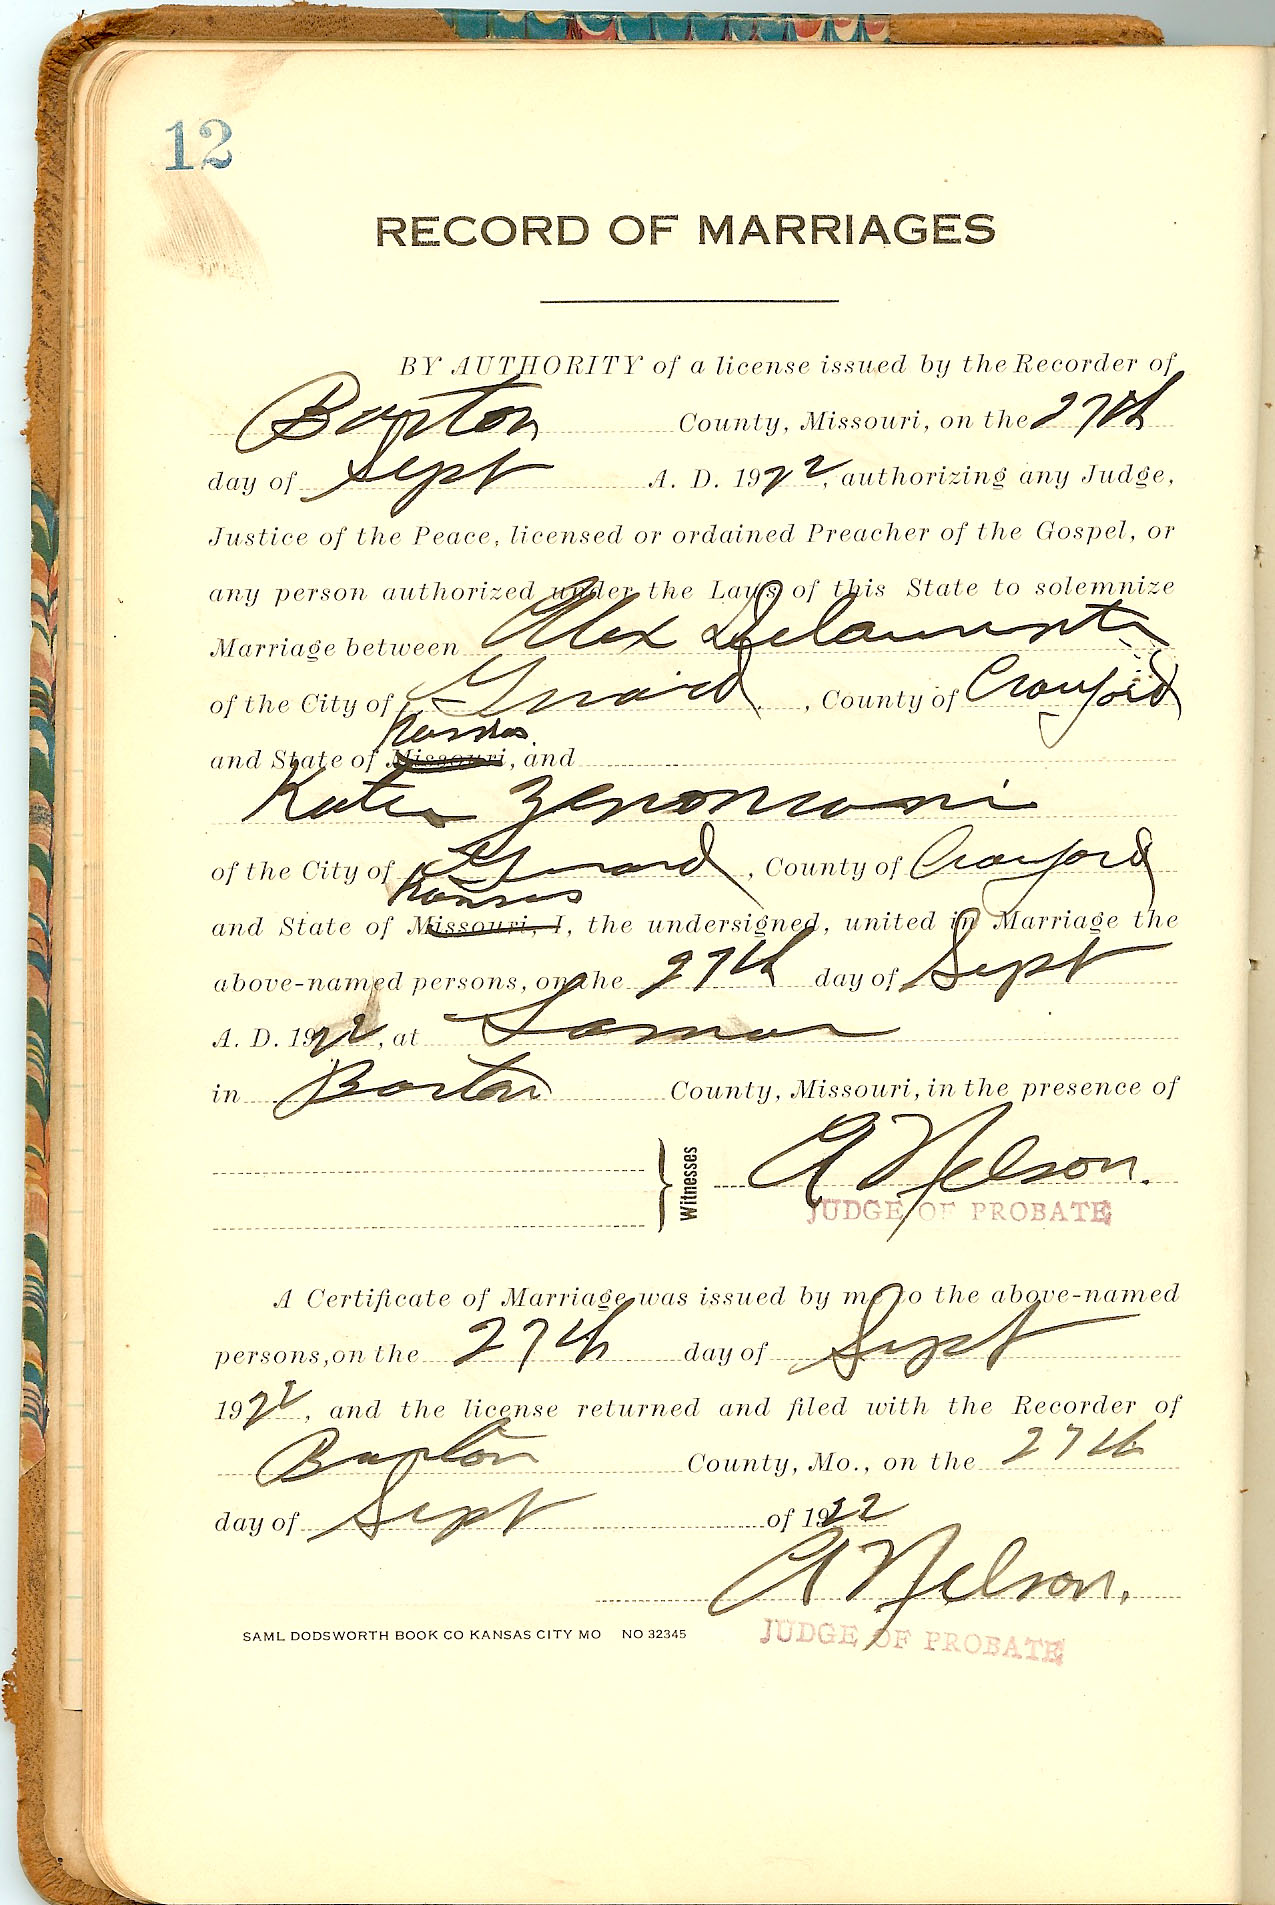 12
RECORD OF MARRIAGES
BY AUTHORITY of a license issued by the Recorder of
Barton County, Missouri, on the 27th
day of Sept A. D. 1922, authorizing any Judge,
Justice of the Peace, licensed or ordained Preacher of the Gospel, or
any person authorized under the Laws of this State to solemnize
Marriage between Alex
of the City of Girard, County of Crawford
Kansas
and State of Missouri, and
Katie
of the City of Girard, County of Crawford
Kansas
and State of Missouri, I, the undersigned, united in Marriage the
above-named persons, on the 27th day of Sept
A. D. 1922, at Lamar
in Barton County, Missouri, in the presence of
Witnesses A Nelson.
JUDGE OF PROBATE
A Certificate of Marriage was issued by me to the above-named
persons, on the 27th day of Sept
1922, and the license returned and filed with the Recorder of
Barton County, Mo., on the 27th
day of Sept of 1922
A Nelson.
SAML DODSWORTH BOOK CO KANSAS CITY MO NO 32345
JUDGE OF PROBATE